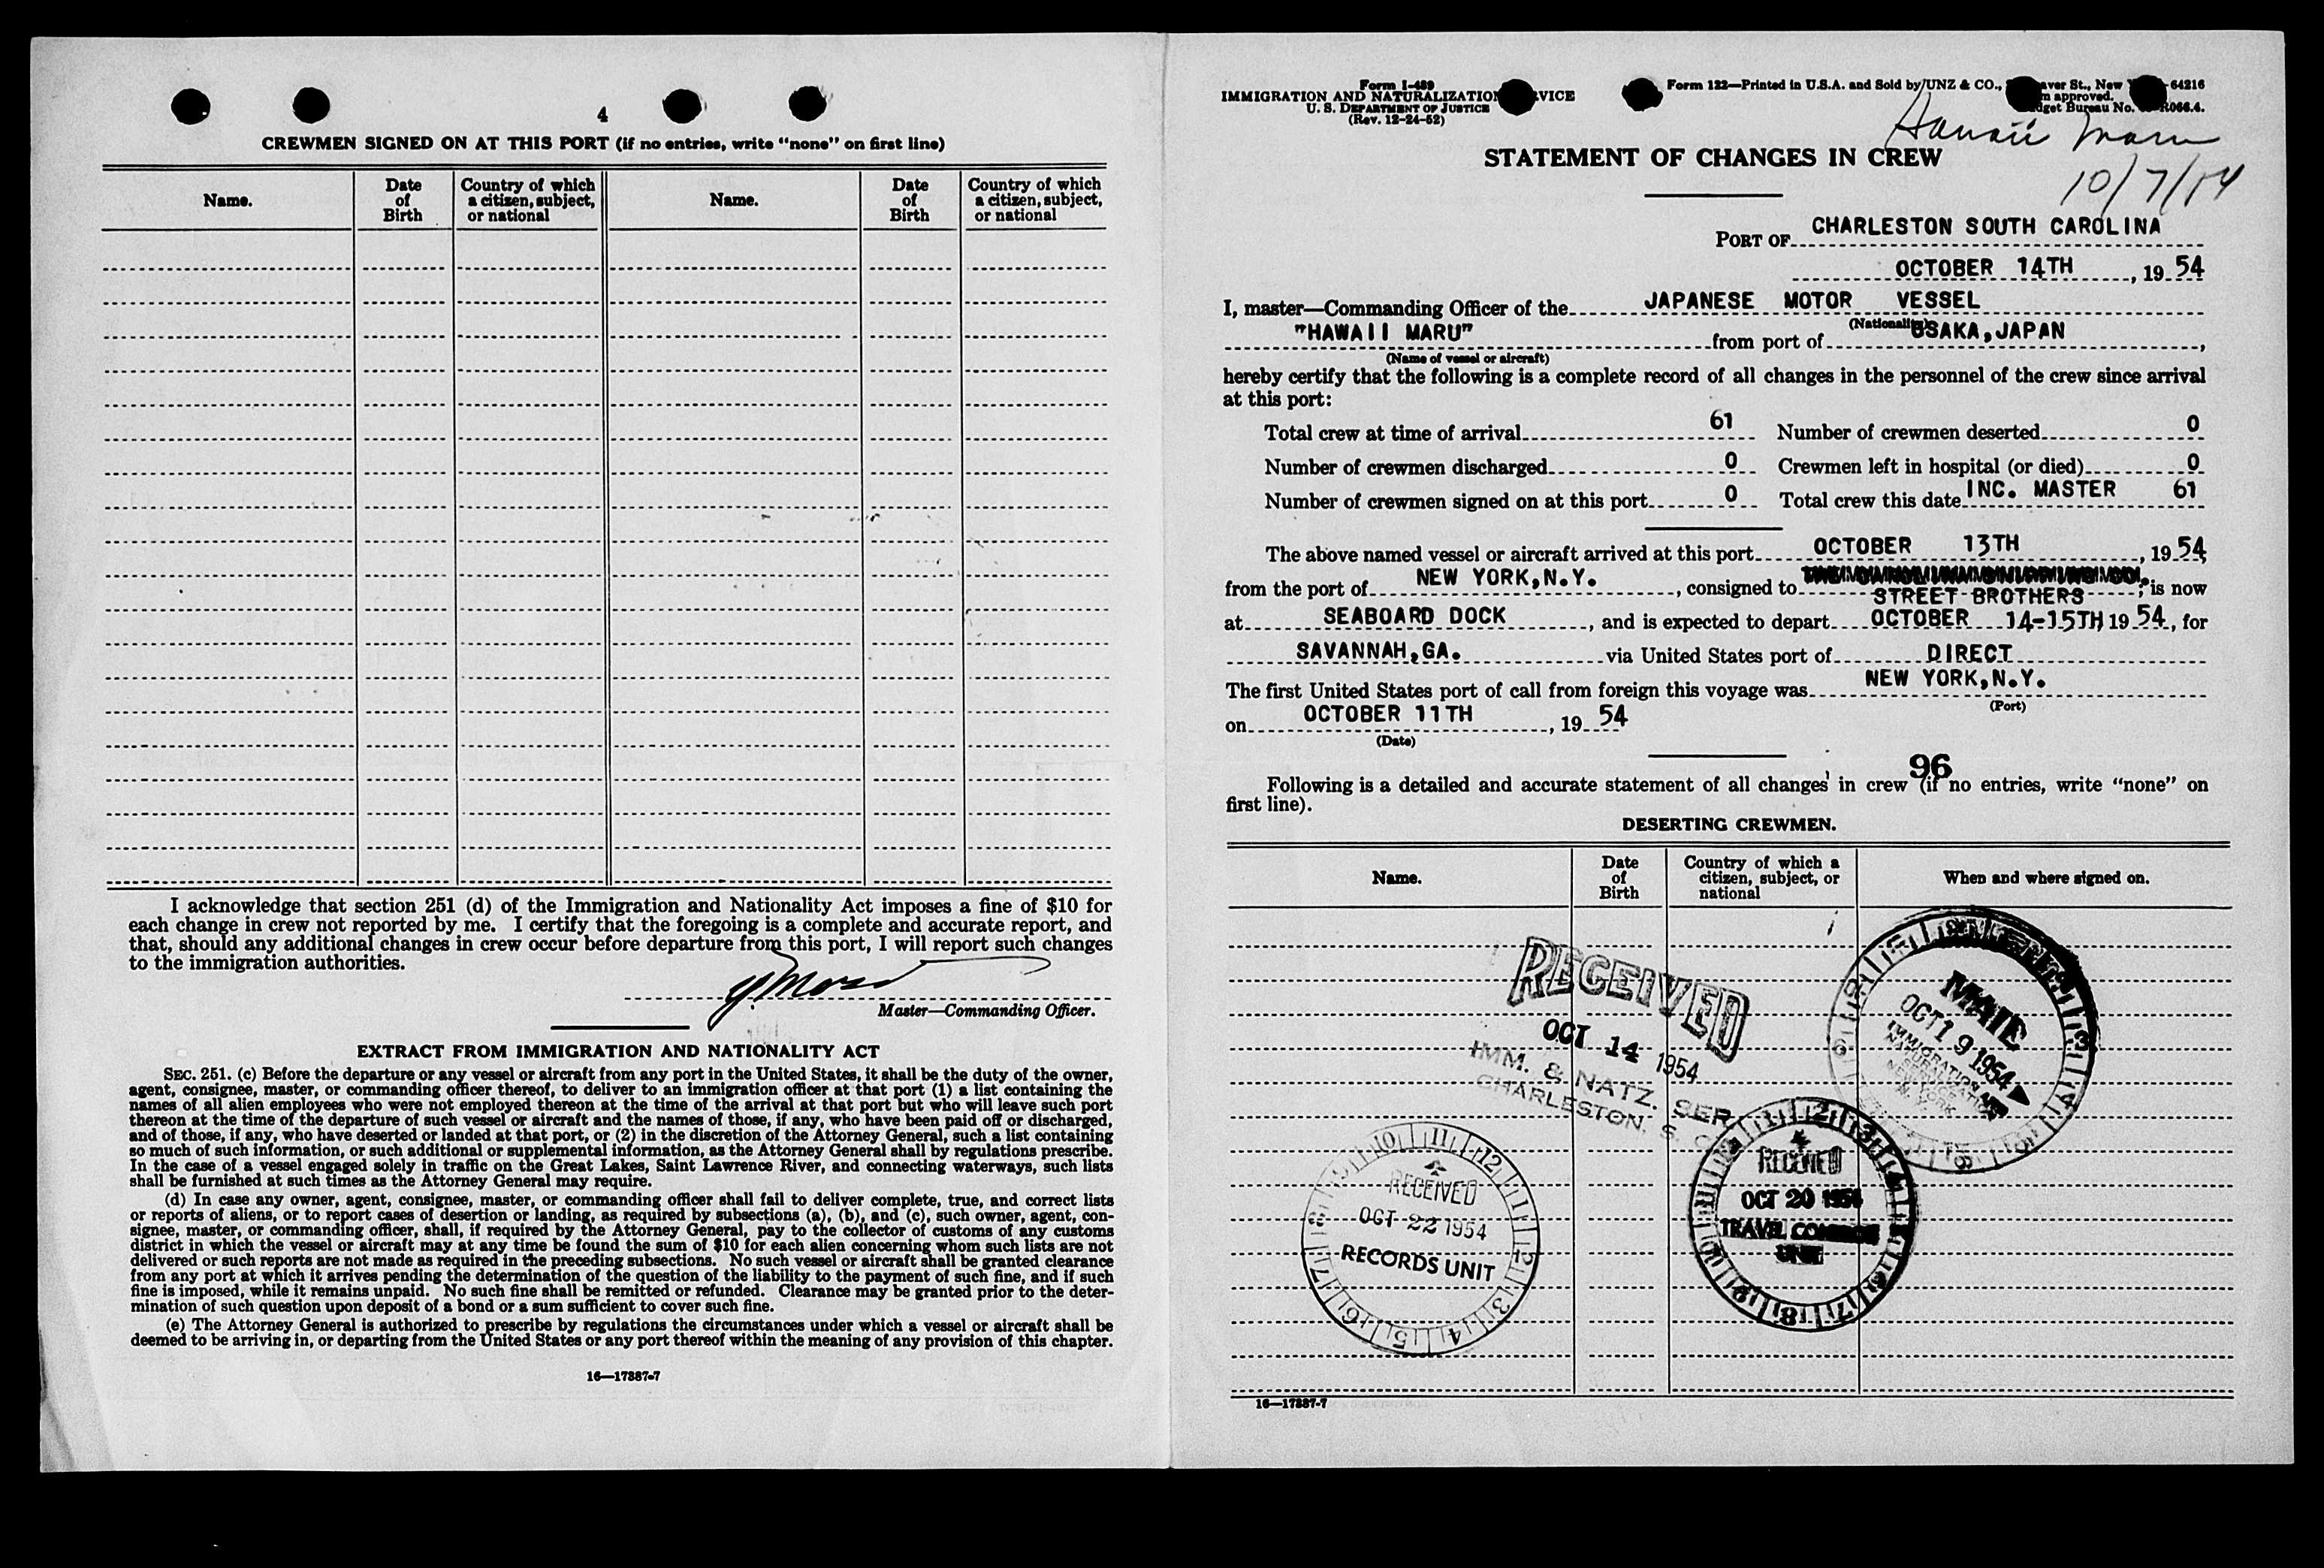 4
CREWMEN SIGNED ON AT THIS PORT (if no entries, write "none" on first line)
Name. Date of Birth Country of which a citizen, subject, or national Name. Date of Birth Country of which a citizen, subject, or national
I acknowledge that section 251 (d) of the Immigration and Nationality Act imposes a fine of $10 for
each change in crew not reported by me. I certify that the foregoing is a complete and accurate report, and
that, should any additional changes in crew occur before departure from this port, I will report such changes
to the immigration authorities.
Master—Commanding Officer.
EXTRACT FROM IMMIGRATION AND NATIONALITY ACT
SEC. 251. (c) Before the departure or any vessel or aircraft from any port in the United States, it shall be the duty of the owner,
agent, consignee, master, or commanding officer thereof, to deliver to an immigration officer at that port (1) a list containing the
names of all alien employees who were not employed thereon at the time of the arrival at that port but who will leave such port
thereon at the time of the departure of such vessel or aircraft and the names of those, if any, who have been paid off or discharged,
and of those, if any, who have deserted or landed at that port, or (2) in the discretion of the Attorney General, such a list containing
so much of such information, or such additional or supplemental information, as the Attorney General shall by regulations prescribe.
In the case of a vessel engaged solely in traffic on the Great Lakes, Saint Lawrence River, and connecting waterways, such lists
shall be furnished at such times as the Attorney General may require.
(d) In case any owner, agent, consignee, master, or commanding officer shall fail to deliver complete, true, and correct lists
or reports of aliens, or to report cases of desertion or landing, as required by subsections (a), (b), and (c), such owner, agent, con-
signee, master, or commanding officer, shall, if required by the Attorney General, pay to the collector of customs of any customs
district in which the vessel or aircraft may at any time be found the sum of $10 for each alien concerning whom such lists are not
delivered or such reports are not made as required in the preceding subsections. No such vessel or aircraft shall be granted clearance
from any port at which it arrives pending the determination of the question of the liability to the payment of such fine, and if such
fine is imposed, while it remains unpaid. No such fine shall be remitted or refunded. Clearance may be granted prior to the deter-
mination of such question upon deposit of a bond or a sum sufficient to cover such fine.
(e) The Attorney General is authorized to prescribe by regulations the circumstances under which a vessel or aircraft shall be
deemed to be arriving in, or departing from the United States or any port thereof within the meaning of any provision of this chapter.
16—17887-7
Form I-489
IMMIGRATION AND NATURALIZATION VICE
U. S. DEPARTMENT OF JUSTICE
(Rev. 12-24-52)
Form 122—Printed in U.S.A. and Sold by UNZ & CO., aver St., New 64216
approved.
get Bureau No. R066.4.
Hawaii Maru
10/7/54
STATEMENT OF CHANGES IN CREW
PORT OF CHARLESTON SOUTH CAROLINA
OCTOBER 14TH, 19 54
I, master—Commanding Officer of the JAPANESE MOTOR VESSEL
(Nationality)
"HAWAII MARU" from port of OSAKA,JAPAN,
(Name of vessel or aircraft)
hereby certify that the following is a complete record of all changes in the personnel of the crew since arrival
at this port:
Total crew at time of arrival 61 Number of crewmen deserted 0
Number of crewmen discharged 0 Crewmen left in hospital (or died) 0
Number of crewmen signed on at this port 0 Total crew this date INC. MASTER 61
The above named vessel or aircraft arrived at this port OCTOBER 13TH, 19 54,
from the port of NEW YORK,N.Y., consigned to STREET BROTHERS; is now
at SEABOARD DOCK, and is expected to depart OCTOBER 14-15TH 19 54, for
SAVANNAH,GA. via United States port of DIRECT
The first United States port of call from foreign this voyage was NEW YORK,N.Y.
(Port)
on OCTOBER 11TH, 19 54
(Date)
96
Following is a detailed and accurate statement of all changes in crew (if no entries, write "none" on
first line).
DESERTING CREWMEN.
Name. Date of Birth Country of which a citizen, subject, or national When and where signed on.
RECEIVED
OCT 14 1954
IMM. & NATZ. SER
CHARLESTON, S. C.
MAIL
OCT 19 1954
IMMIGRATION
NATURALIZATION
SERVICE
NEW YORK
N. Y.
RECEIVED
OCT 20 1954
TRAVEL CONTROL
UNIT
RECEIVED
OCT 22 1954
RECORDS UNIT
16—17887-7